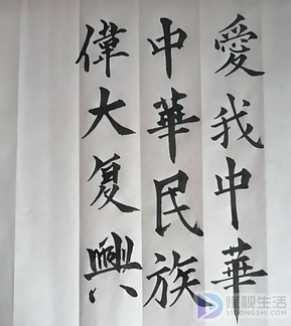 愛我中華
中華民族
偉大复興
懂视生活
51DONGSHI.COM